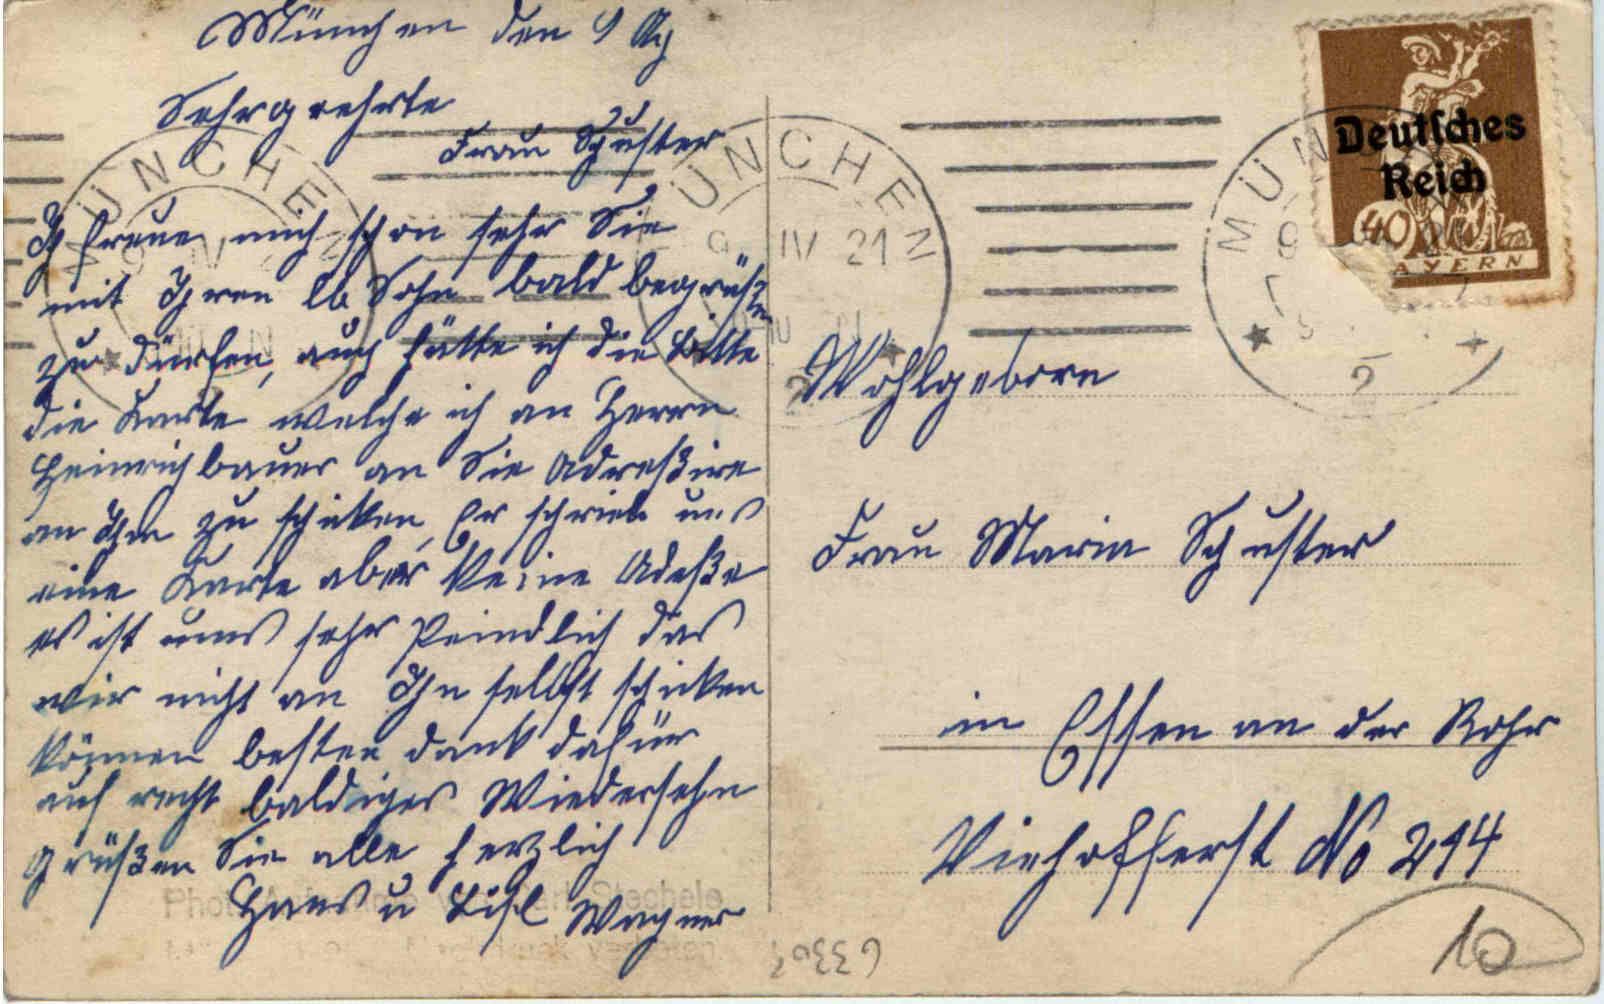 München den 9
Sehrgeehrte
Frau Schuster
Ich freue mich schon sehr Sie
mit Ihren lb Sohn bald begrüßen
zu dürfen, auch hätte ich die Bitte
die Karte welche ich an Herrn
Heinrichbauer an Sie Adreßire
an Ihn zu schicken, Er schrieb uns
eine Karte aber keine Adeße
es ist uns sehr Peindlich das
wir nicht an Ihn selbst schicken
können besten dank dafür
auf recht baldiges Wiedersehn
grüßen Sie alle herzlich
Hans u Lisl Wagner
MÜNCHEN
ÜNCHEN
IV 21
2
MÜN
2
Deutsches
Reich
40
AYERN
Wohlgeboren
Frau Maria Schuster
in Essen an der Rohr
Viehofferst No 214
Stechele
10